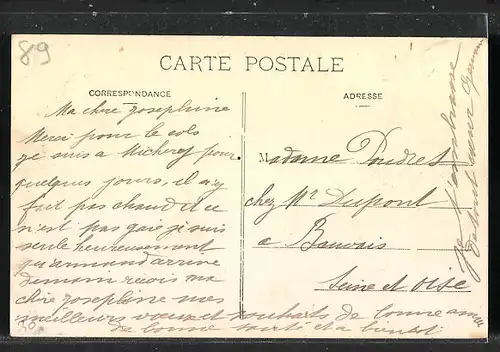 89
CARTE POSTALE
CORRESPONDANCE
Ma chère Josephine
Merci pour le colis
je suis a Micherof pour
quelques jours, il n'y
fait pas chaud et ce
n'est pas gaie je suis
seule heureusement
qu'armand arrive
demain reçois ma
chère Josephine mes
meilleurs voeux et souhaits de bonne année
de bonne santé et a bientot
ADRESSE
Madame Poudret
chez Mr Dupont
a Bouvais
Seine et Oise
Je t'embrasse
de tout coeur
30